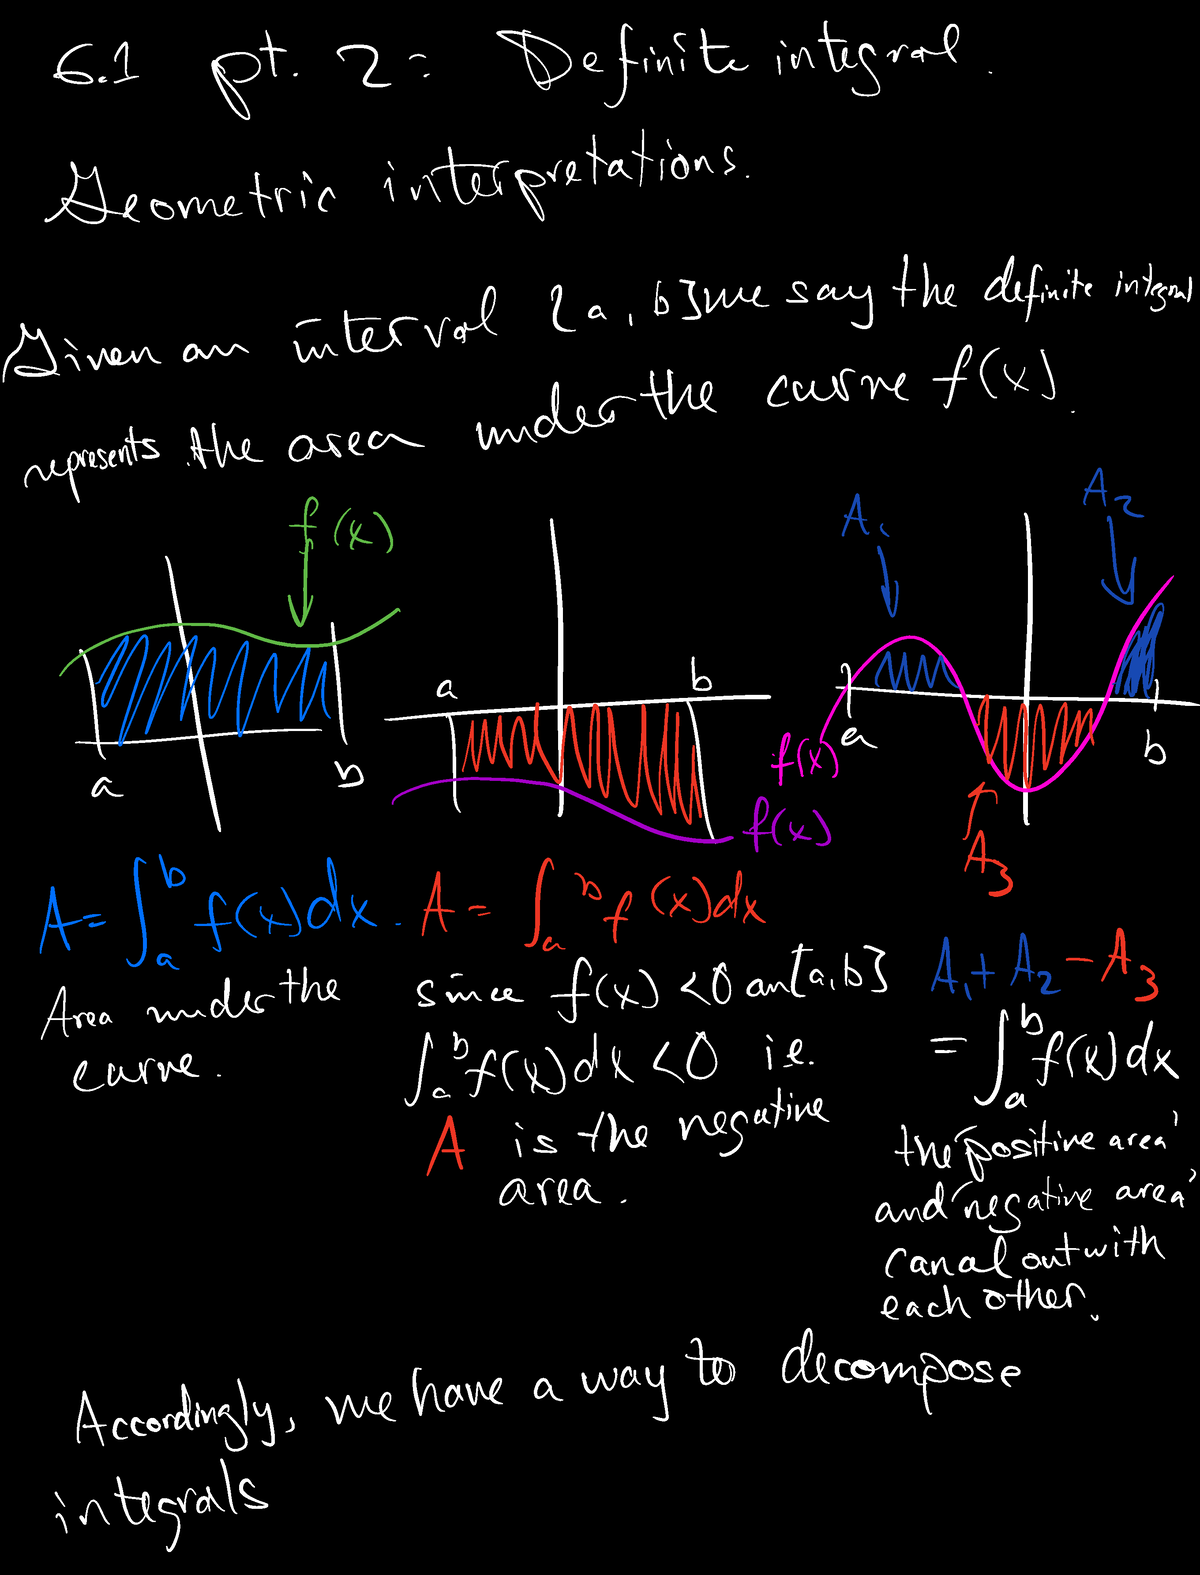 6.1 pt. 2: Definite integral.
Geometric interpretations.
Given an interval [a, b] we say the definite integral
represents the area under the curve f(x).
f(x)
a
b
a
b
f(x)
A₁
A₂
f(x)
a
b
A₃
A = ∫ₐᵇ f(x)dx.
Area under the
curve.
A = ∫ₐᵇ f(x)dx
since f(x) < 0 on [a, b]
∫ₐᵇ f(x)dx < 0 i.e.
A is the negative
area.
A₁ + A₂ - A₃
= ∫ₐᵇ f(x)dx
the "positive area"
and "negative area"
cancel out with
each other.
Accordingly, we have a way to decompose
integrals